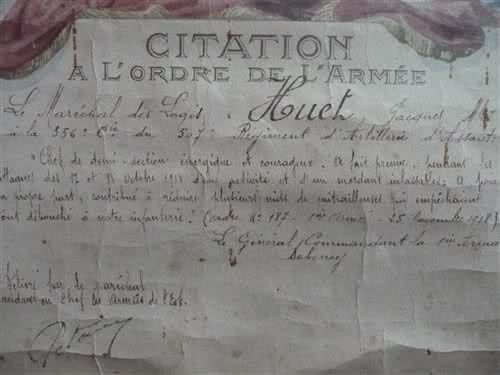 CITATION
A L'ORDRE DE L'ARMÉE
Le Maréchal des Logis, Huet, Jacques
à la 356e Cie du 507e Régiment d'Artillerie d'Assaut
"Chef de demi-section énergique et courageux. A fait preuve, pendant les
attaques des 17 et 18 Octobre 1918 d'une activité et d'un mordant inlassables. A pour
sa propre part, contribué à réduire plusieurs nids de mitrailleuses qui empêchaient
tout débouché à notre infanterie." (Ordre No 187 1ère Armée - 25 Novembre 1918)
Le Général Commandant la 1ère Armée
Debeney
Délivré par le maréchal
Commandant en Chef les Armées de l'Est.